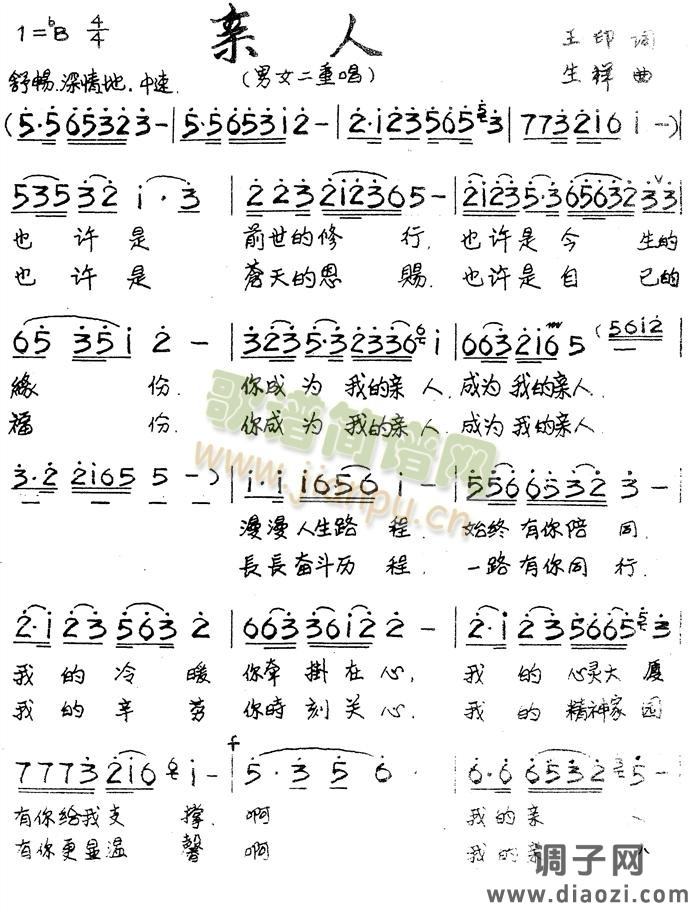 1=ᵇB 4/4 亲人 王印 词
舒畅.深情地.中速. (男女二重唱) 生祥 曲
(5·5 65323- | 5·5 6533i2- | 2·i 23565 3 | 77 32i6 i -) |
5 3 5 3 2 i · 3 | 2 2 3 2i2365- | 2i235·3 656323 3
也许是 前世的修 行. 也许是今 生的
也许是 蒼天的恩 賜. 也许是自 己的
65 35i 2 - | 3235·32336 i | 6632i6 5 (56i2
緣 份. 你成为 我的亲人. 成为我的亲人.
福 份. 你成为 我的亲人. 成为我的亲人.
3·2 2i65 5 -) | i·i i656 i - | 556 6532 3 -
漫漫人生路 程. 始终有你陪 同.
長長奋斗历 程. 一路有你同 行.
2·i 23 563 2 | 663 36i2 2 - | 2·i 23 5665 3
我的冷 暖 你牵掛在心, 我的心灵大厦
我的辛 劳 你時刻关心. 我的精神家园
7773 2i6 i - | f 5·3 5 6 | 6·6 6532 5 -
有你给我支 撑. 啊 我的亲
有你更显温 馨 啊 我的亲人
歌谱简谱网
www.jianpu.cn
调子网
www.diaozi.com